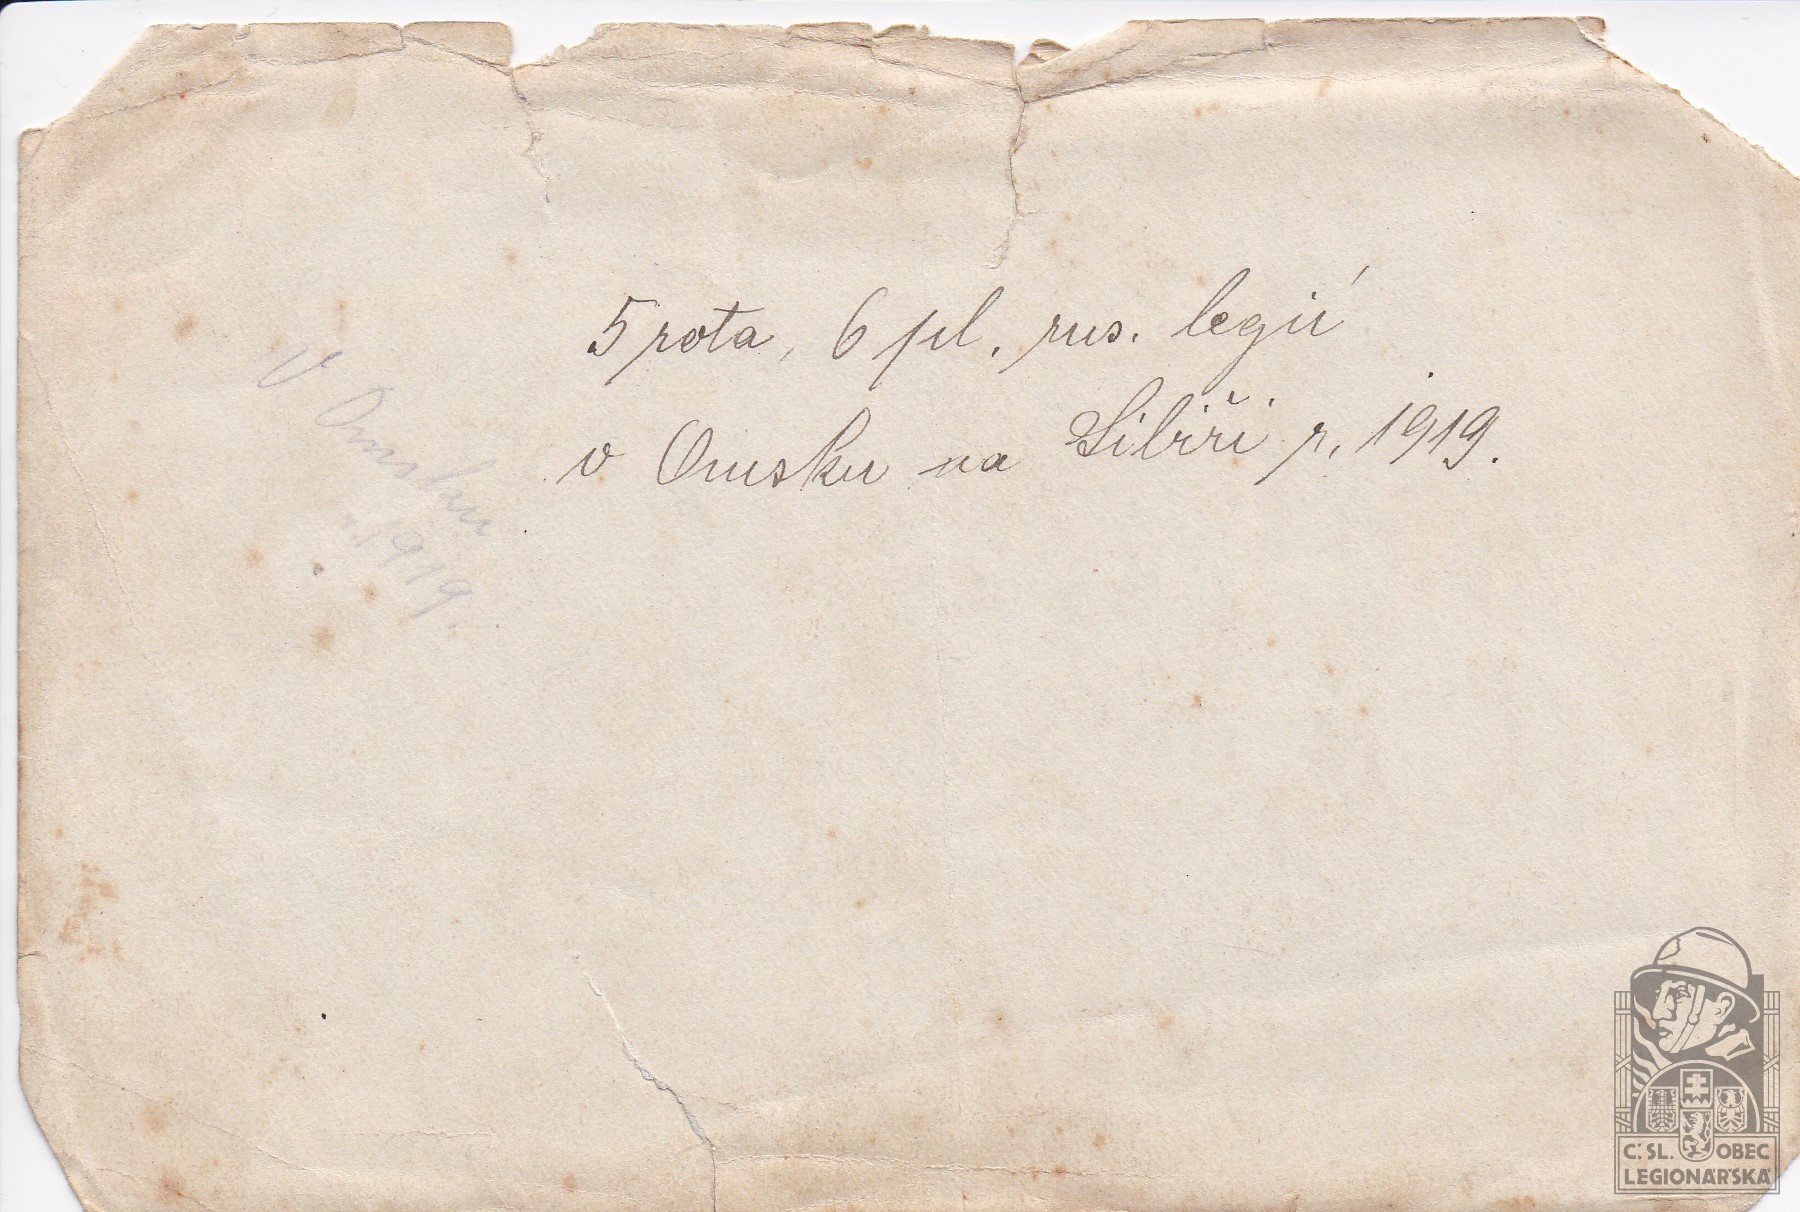 5 rota, 6 pl. rus. legií
v Omsku na Sibiři r. 1919.
V Omsku
r. 1919.
Č.SL. OBEC
LEGIONÁŘSKÁ